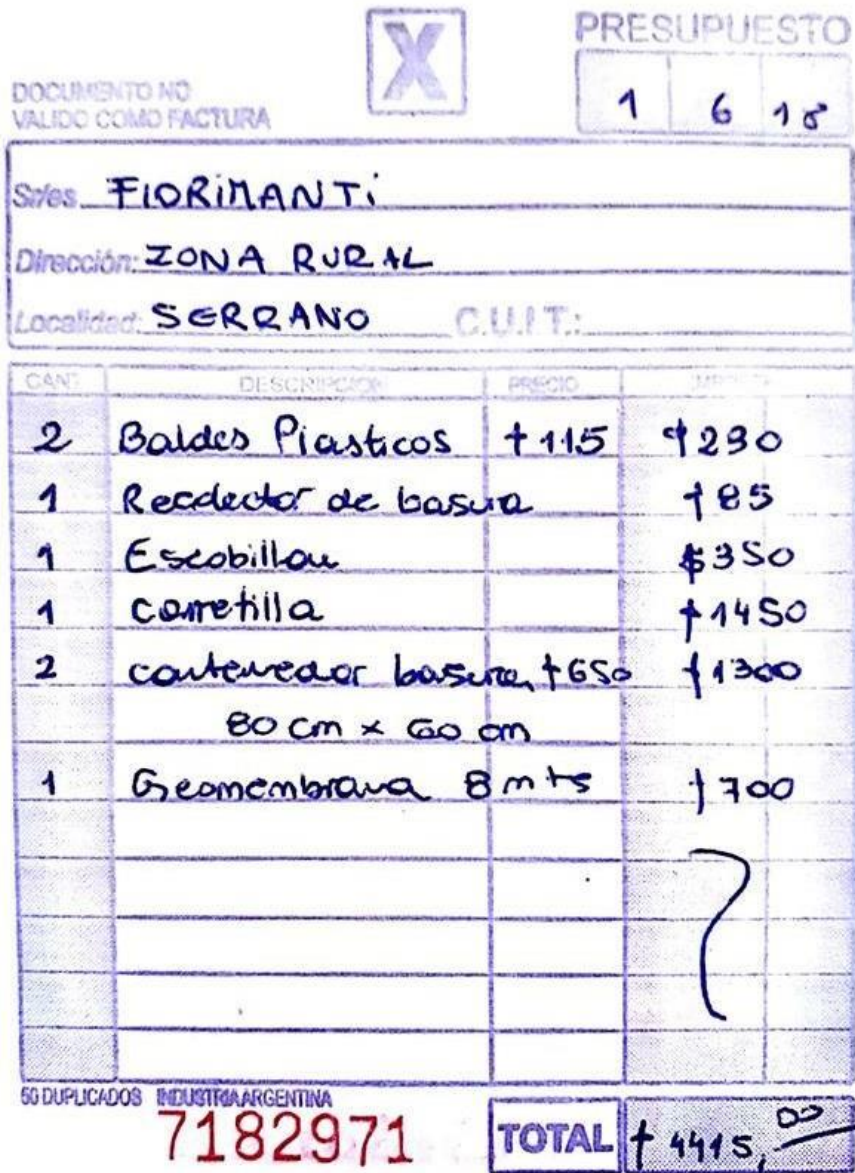 X
PRESUPUESTO
DOCUMENTO NO
VALIDO COMO FACTURA
1 6 18
Sr/es. FIORIMANTI
Dirección: ZONA RURAL
Localidad: SERRANO C.U.I.T.:
CANT. DESCRIPCION PRECIO IMPORTE
2 Baldes Plasticos $115 $230
1 Recolector de basura $85
1 Escobillon $350
1 carretilla $1450
2 contenedor basura $650 $1300
80 cm x 60 cm
1 Geomembrana 8 mts $700
50 DUPLICADOS INDUSTRIA ARGENTINA
7182971 TOTAL $4415,00